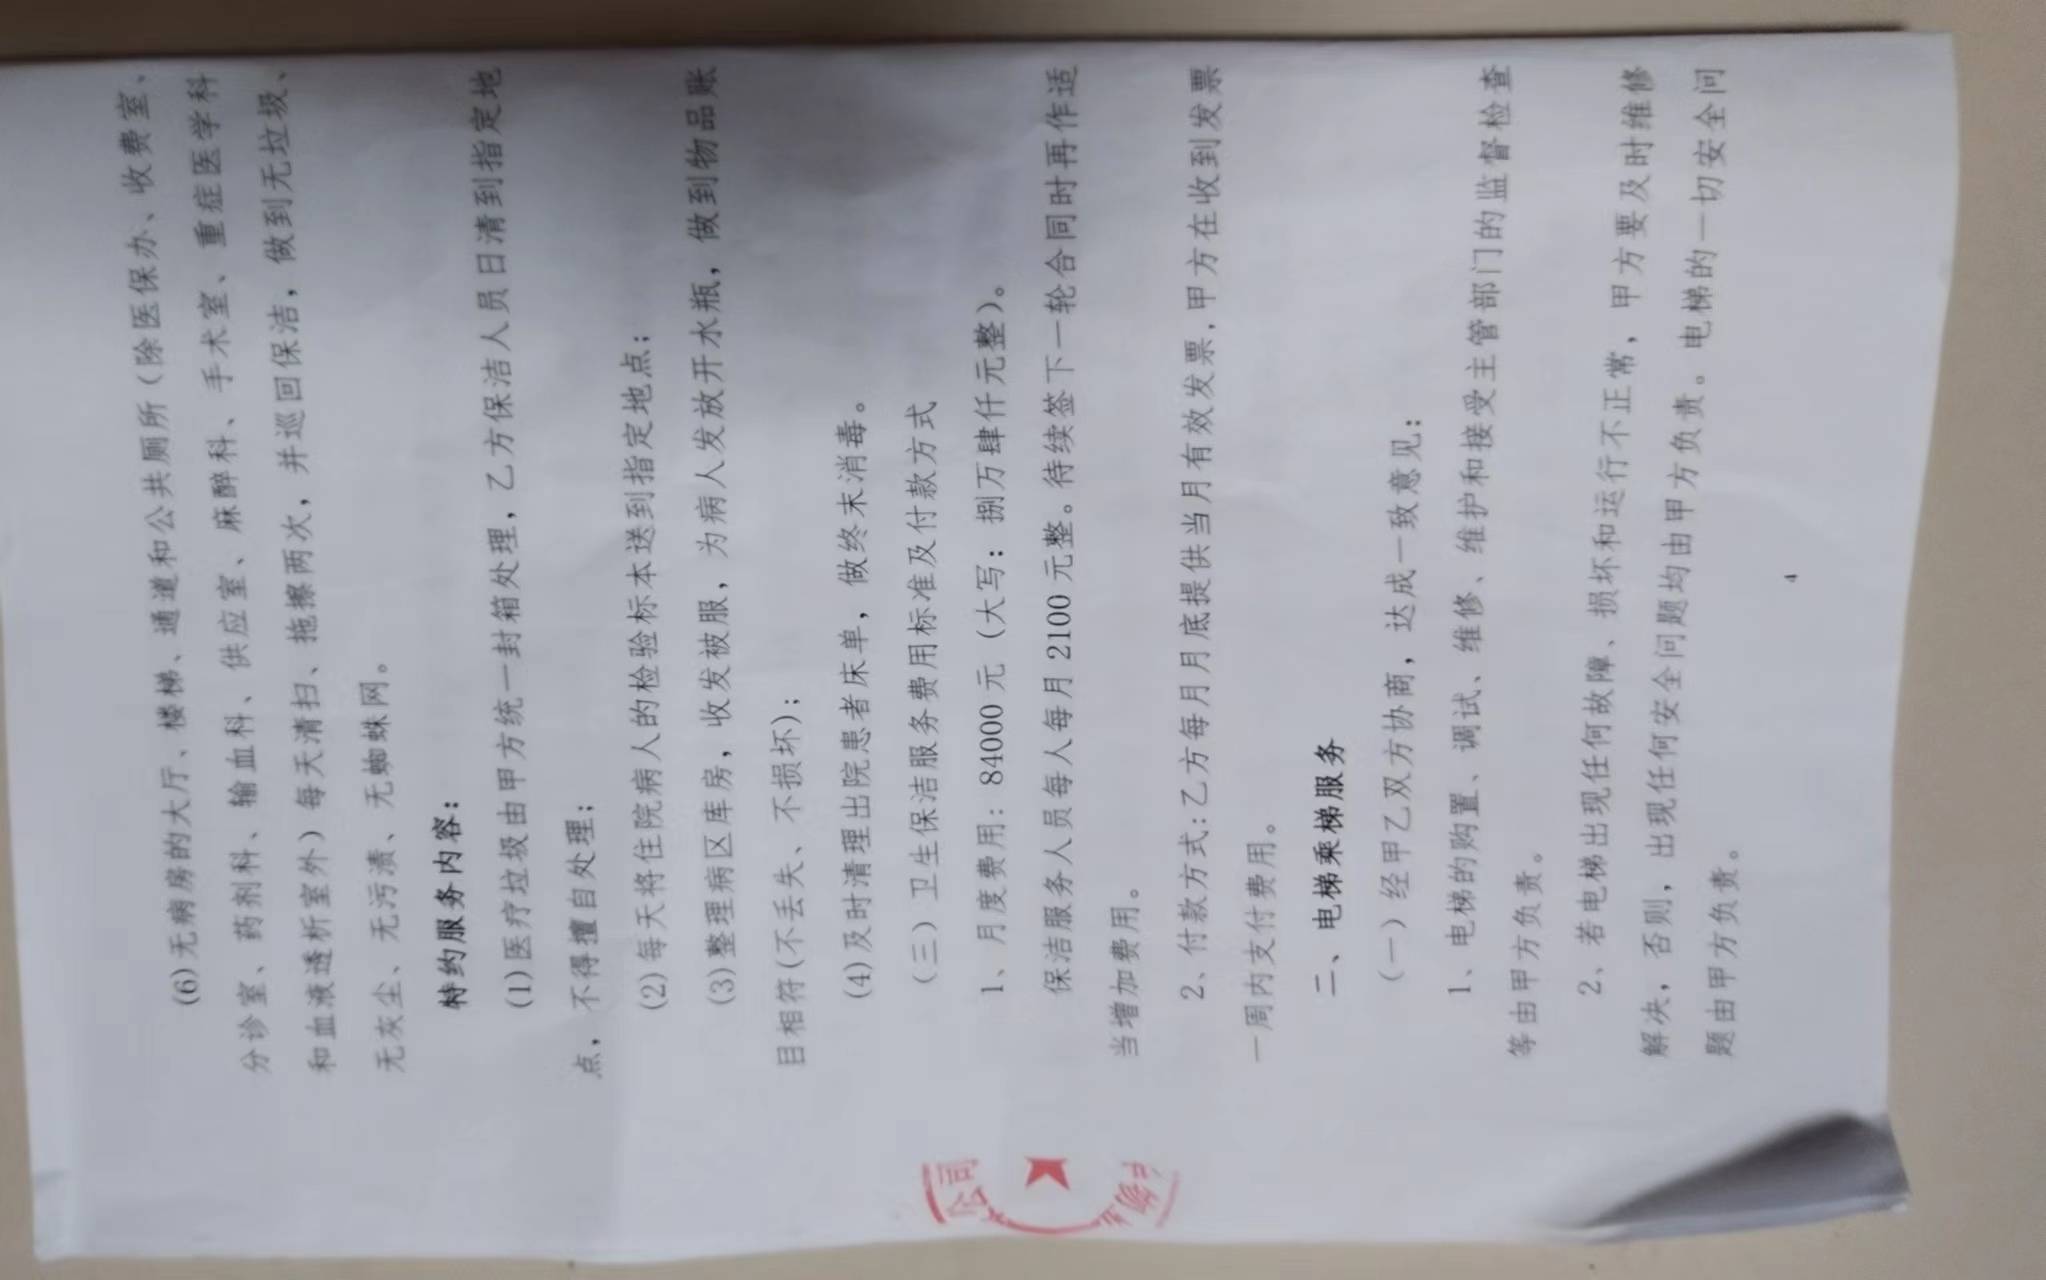 (6)无病房的大厅、楼梯、通道和公共厕所(除医保办、收费室、
分诊室、药剂科、输血科、供应室、麻醉科、手术室、重症医学科
和血液透析室外)每天清扫、拖擦两次，并巡回保洁，做到无垃圾、
无灰尘、无污渍、无蜘蛛网。
特约服务内容：
(1)医疗垃圾由甲方统一封箱处理，乙方保洁人员日清到指定地
点，不得擅自处理；
(2)每天将住院病人的检验标本送到指定地点；
(3)整理病区库房，收发被服，为病人发放开水瓶，做到物品账
目相符(不丢失、不损坏)；
(4)及时清理出院患者床单，做终末消毒。
（三）卫生保洁服务费用标准及付款方式
1、月度费用：84000元（大写：捌万肆仟元整）。
保洁服务人员每人每月2100元整。待续签下一轮合同时再作适
当增加费用。
2、付款方式：乙方每月月底提供当月有效发票，甲方在收到发票
一周内支付费用。
二、电梯乘梯服务
（一）经甲乙双方协商，达成一致意见：
1、电梯的购置、调试、维修、维护和接受主管部门的监督检查
等由甲方负责。
2、若电梯出现任何故障、损坏和运行不正常，甲方要及时维修
解决，否则，出现任何安全问题均由甲方负责。电梯的一切安全问
题由甲方负责。
4
公司